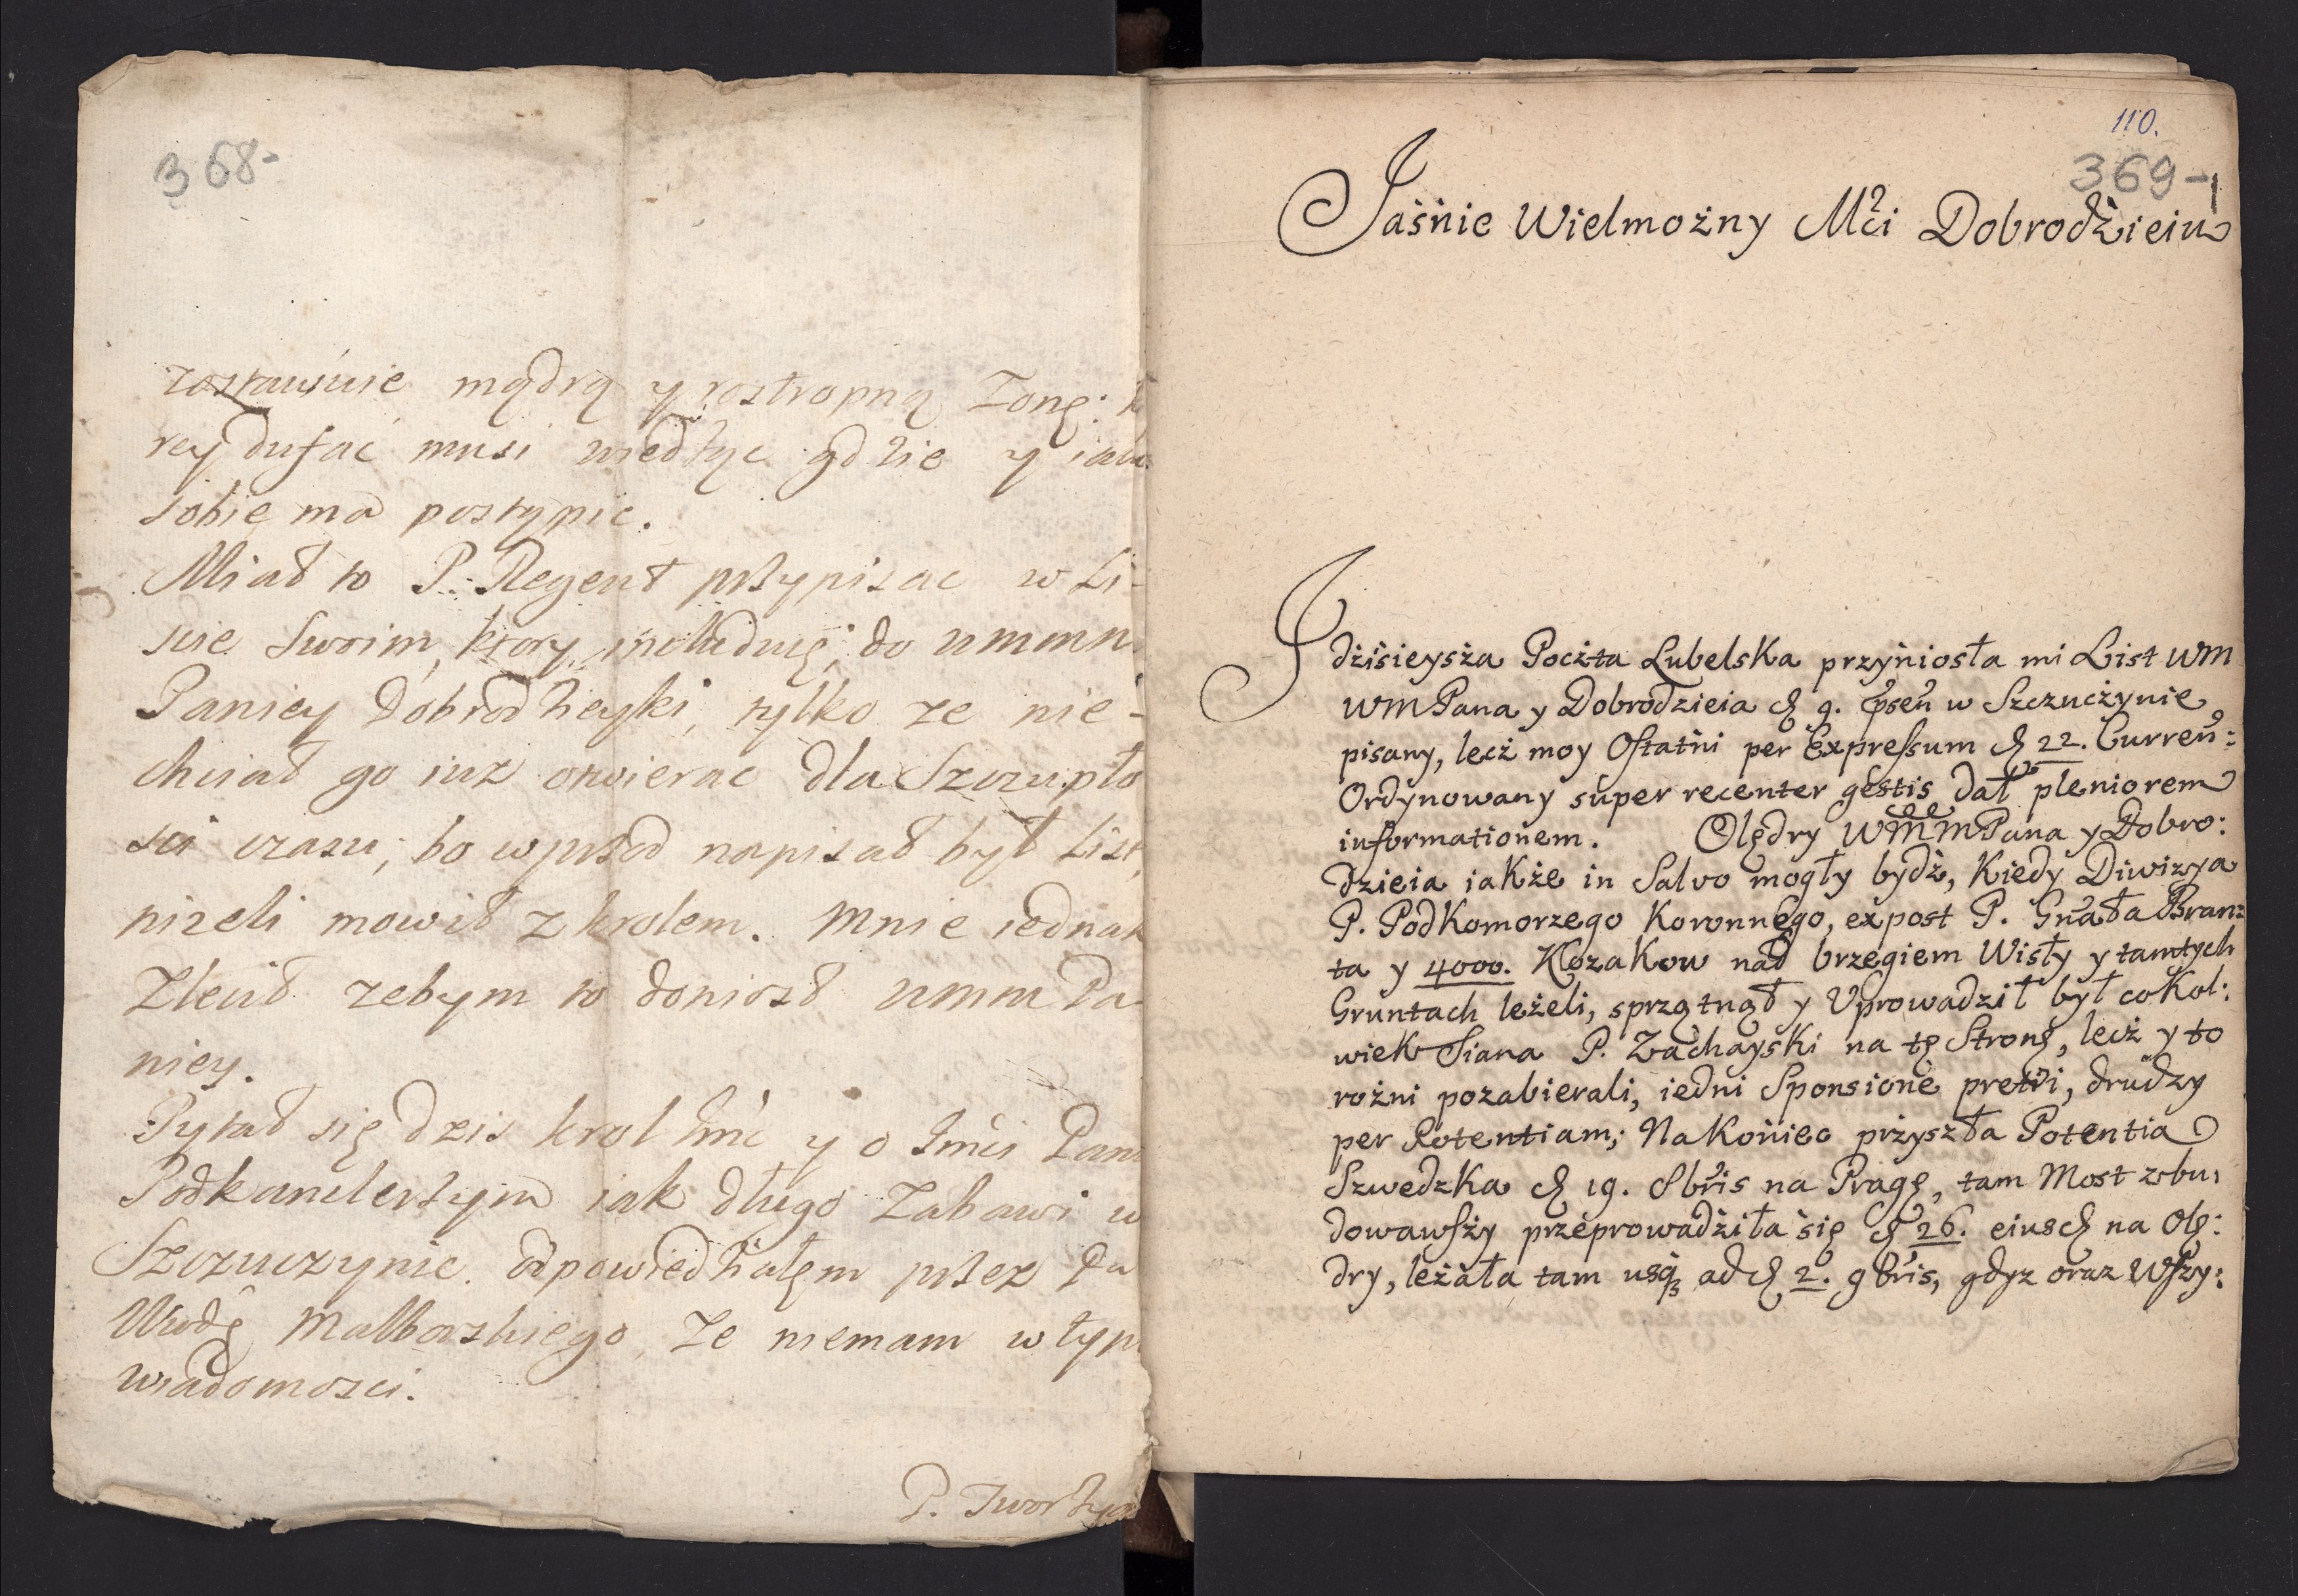 368-
zostawuie mądrą y rostropną Zonę: k
rey dufac musi wiedząc gdzie y iak
sobie ma postąpic.
Miał to P. Regent przypisac w Li-
scie Swoim, ktory includuię, do WMMM
Paniey Dobrodzieyki, tylko ze nie-
chciał go iuz otwierac dla Szczupło
sci czasu; bo wprzod napisał był List,
nizeli mowił z krolem. Mnie iednak
Zlecił zebym to doniosł WMM Pa
niey.
Pytał się dzis krol Imć y o Imći Pan
Podkanclerzym iak długo Zabawi w
Szczuczynie. odpowiedziałęm przez Pa
Wwdę Malborskiego, ze niemam w tym
wiadomosci.
P. Tworzya
110.
369-1
Jaśnie Wielmożny Mći Dobrodźieiu
Jdźisieysza Poczta Lubelska przyniosła mi List WM
WMPana y Dobrodzieia d 9. psen w Szczuczynie
pisany, lecz moy Ostatni per Expressum d 22. Curren:
Ordynowany super recenter gestis dał pleniorem
informationem. Olędry WMMPana y Dobro:
dzieia iakże in Salvo mogły bydź, Kiedy Diwizya
P. PodKomorzego Koronnego, ex post P. Gnała Bran:
ta y 4000. Kozakow nad brzegiem Wisły y tamtych
Gruntach leżeli, sprzątnął y Uprowadził był coKol:
wiek Siana P. Zachayski na tę Stronę, lecz y to
rożni pozabierali, iedni Sponsione pretii, drudzy
per Potentiam; NaKoniec przyszła Potentia
SzwedzKa d 19. 8bris na Pragę, tam Most zbu:
dowawszy przeprowadźiła się d 26. eiusd na Olę:
dry, leżała tam usq ad d 2. 9bris, gdyz oraz Wszy: